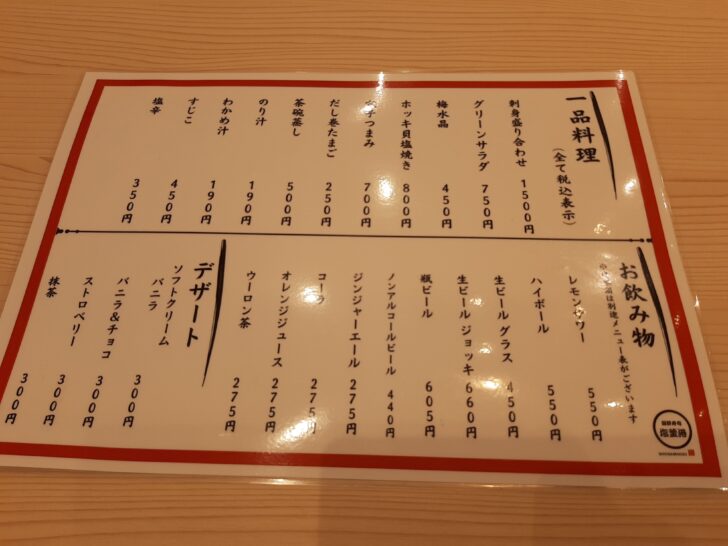 一品料理
(全て税込表示)
刺身盛り合わせ 1500円
グリーンサラダ 750円
梅水晶 450円
ホッキ貝塩焼き 800円
子つまみ 700円
だし巻たまご 250円
茶碗蒸し 500円
のり汁 190円
わかめ汁 190円
すじこ 450円
塩辛 350円
お飲み物
は別途メニュー表がございます
レモンサワー 550円
ハイボール 550円
生ビール グラス 450円
生ビール ジョッキ 660円
瓶ビール 605円
ノンアルコールビール 440円
ジンジャーエール 275円
コーラ 275円
オレンジジュース 275円
ウーロン茶 275円
デザート
ソフトクリーム
バニラ 300円
バニラ&チョコ 300円
ストロベリー 300円
抹茶 300円
廻鮮寿司
塩釜港